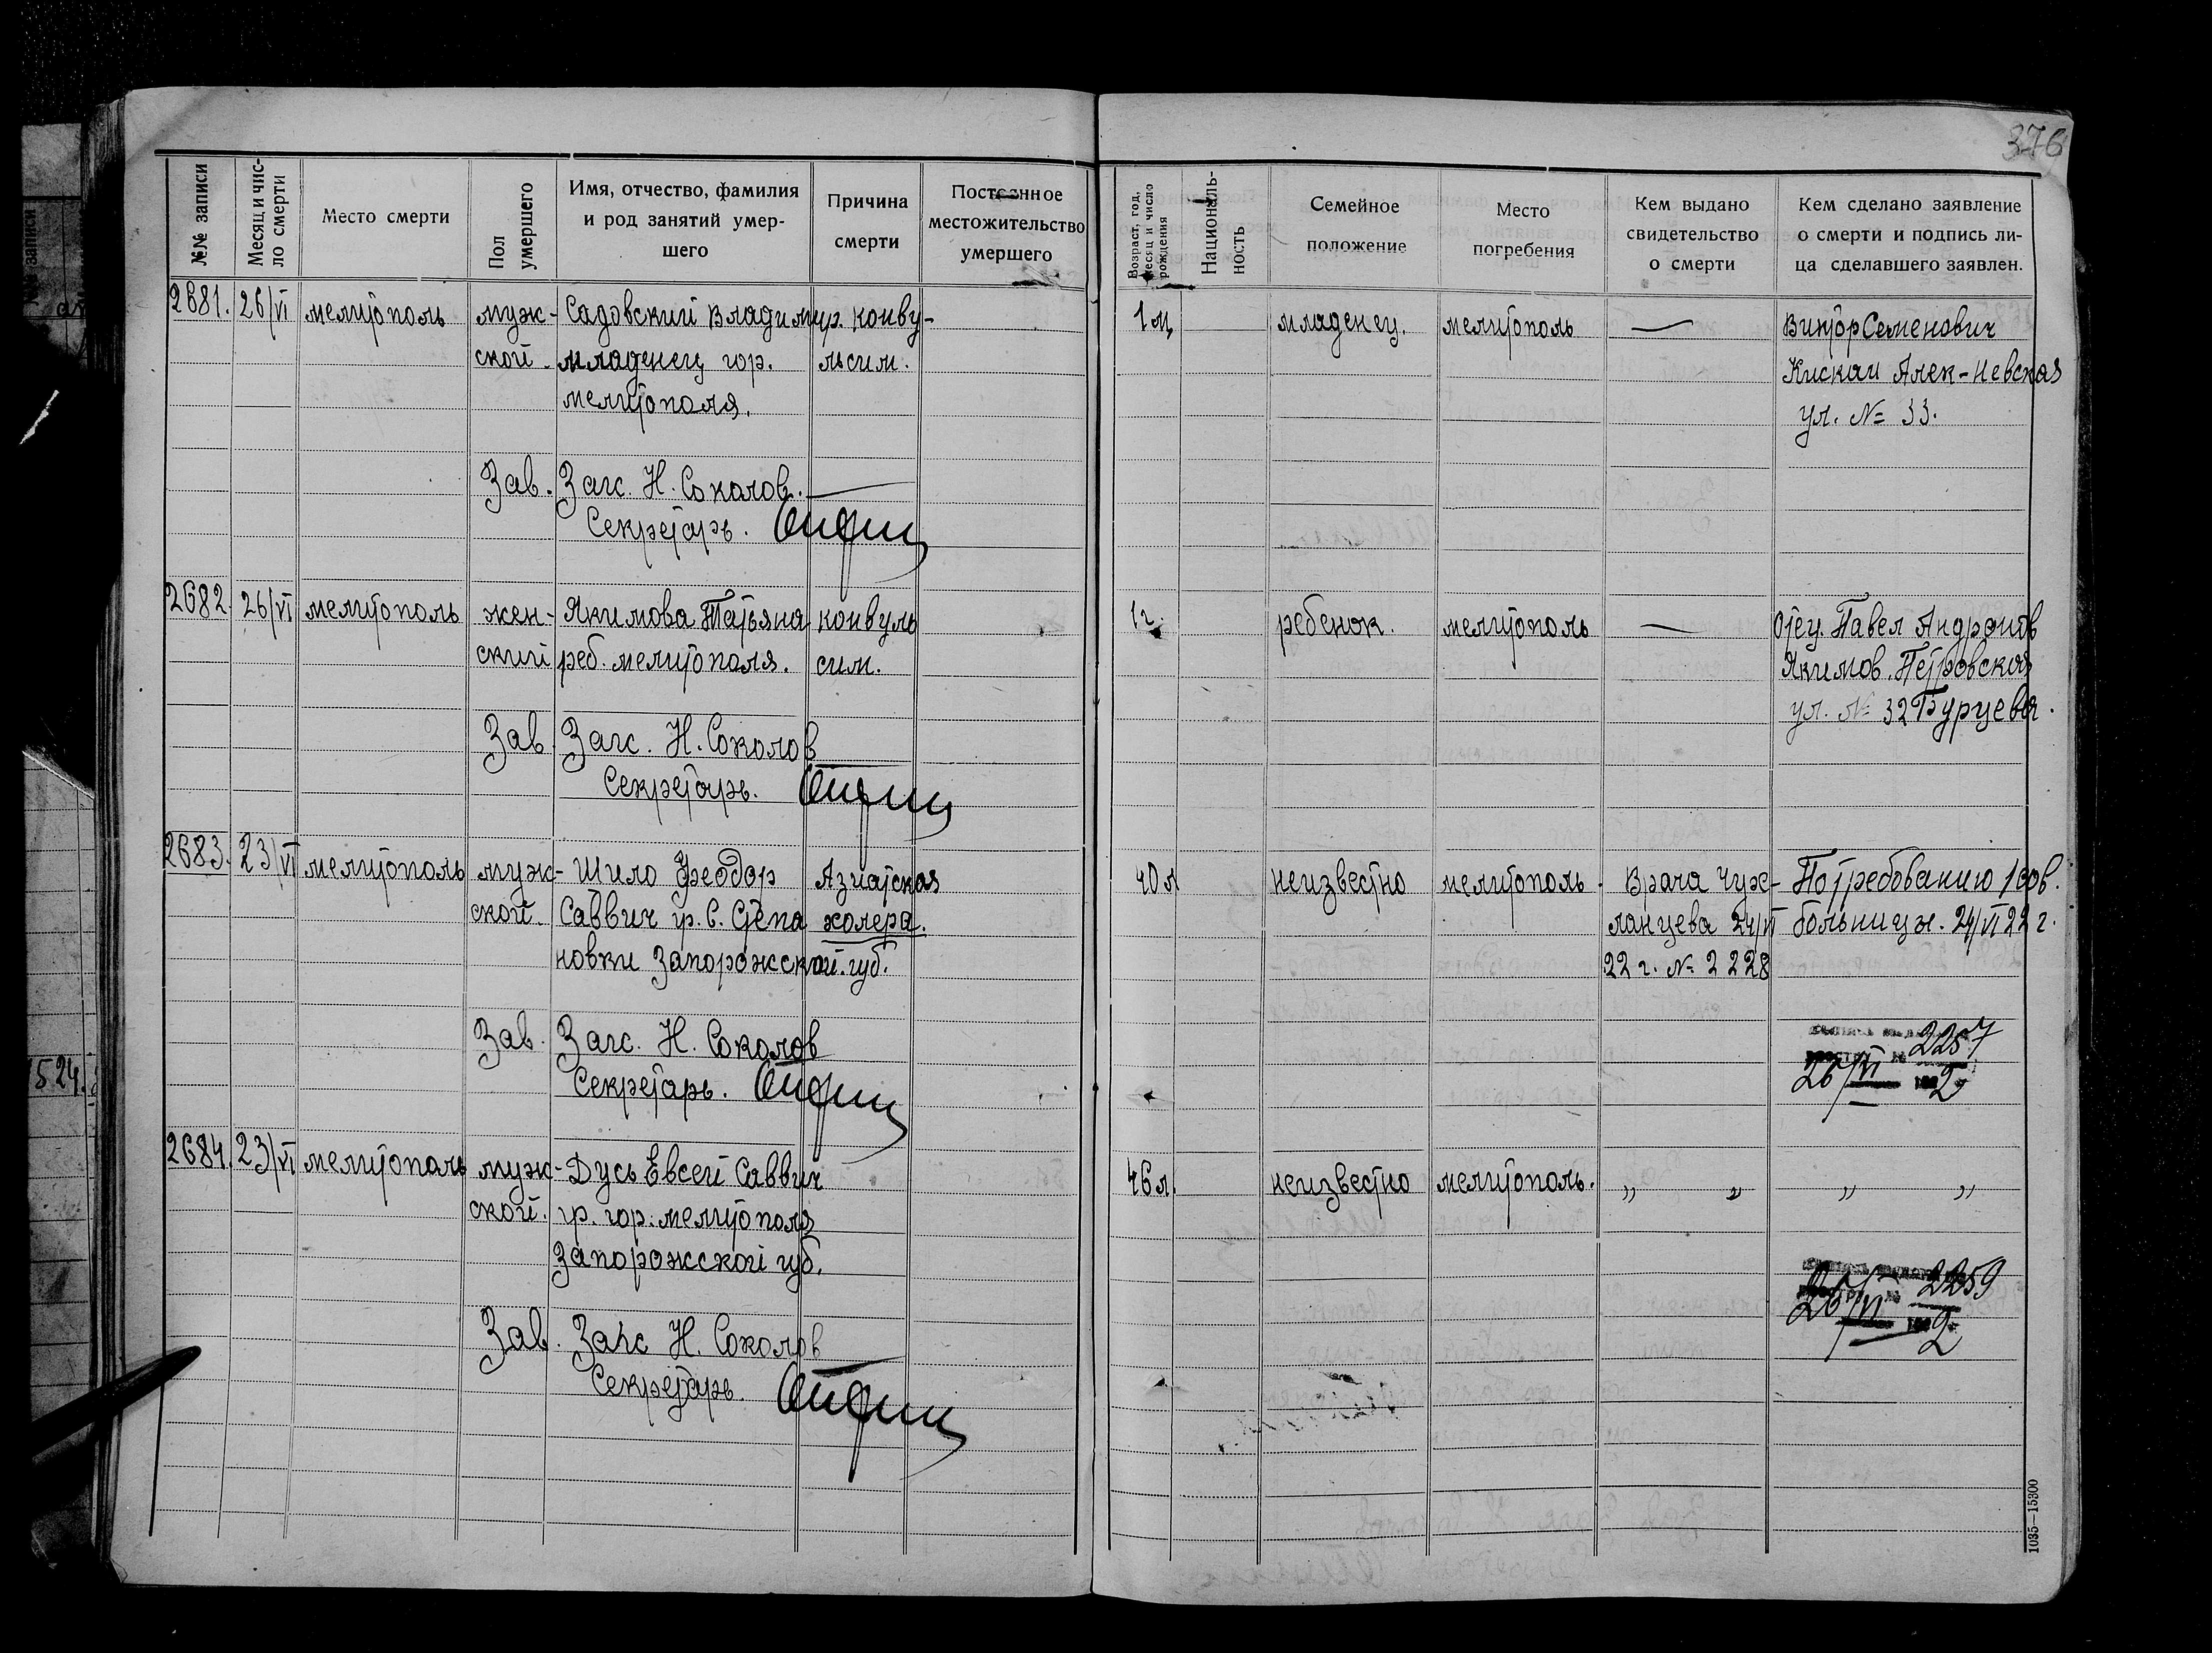 376
№№ записи
Месяц и чис-
ло смерти
Место смерти
Пол
умершего
Имя, отчество, фамилия
и род занятий умер-
шего
Причина
смерти
Постоянное
местожительство
умершего
Возраст, год,
месяц и число
рождения
Националь-
ность
Семейное
положение
Место
погребения
Кем выдано
свидетельство
о смерти
Кем сделано заявление
о смерти и подпись ли-
ца сделавшего заявлен.
2681. 26/VI мелитополь муж- Садовский Владимир. конву- 1 м. младенец. мелитополь — Виктор Семенович
ской. младенец гор. льсии. Алек-Невская
мелитополя. ул. № 33.
Зав. Загс. Н. Соколов.
Секретарь.
2682. 26/VI мелитополь жен- Якимова Татьяна конвуль 1 г. ребенок. мелитополь — Отец. Павел
ский реб. мелитополя. сии. Якимов. Петровская
ул. № 32 Бурцева.
Зав. Загс. Н. Соколов
Секретарь.
2683. 23/VI мелитополь муж- Шило Феодор Азиатская 40 л неизвестно мелитополь. Врача По требованию 1 сов.
ской. Саввич гр. с. Степа холера. ланцева 24/VI больницы. 24/VI 22 г.
новки Запорожской. губ. 22 г. № 2228
Зав. Загс. Н. Соколов
2257
26/VI 192 2
Секретарь.
2684. 23/VI мелитополь муж- Дусь Евсей Саввич 46 л. неизвестно мелитополь. „ „ „ „
ской. гр. гор. мелитополя
Запорожской губ.
2259
26/VI 192 2
Зав. Загс Н. Соколов
Секретарь.
1035—15300
524.